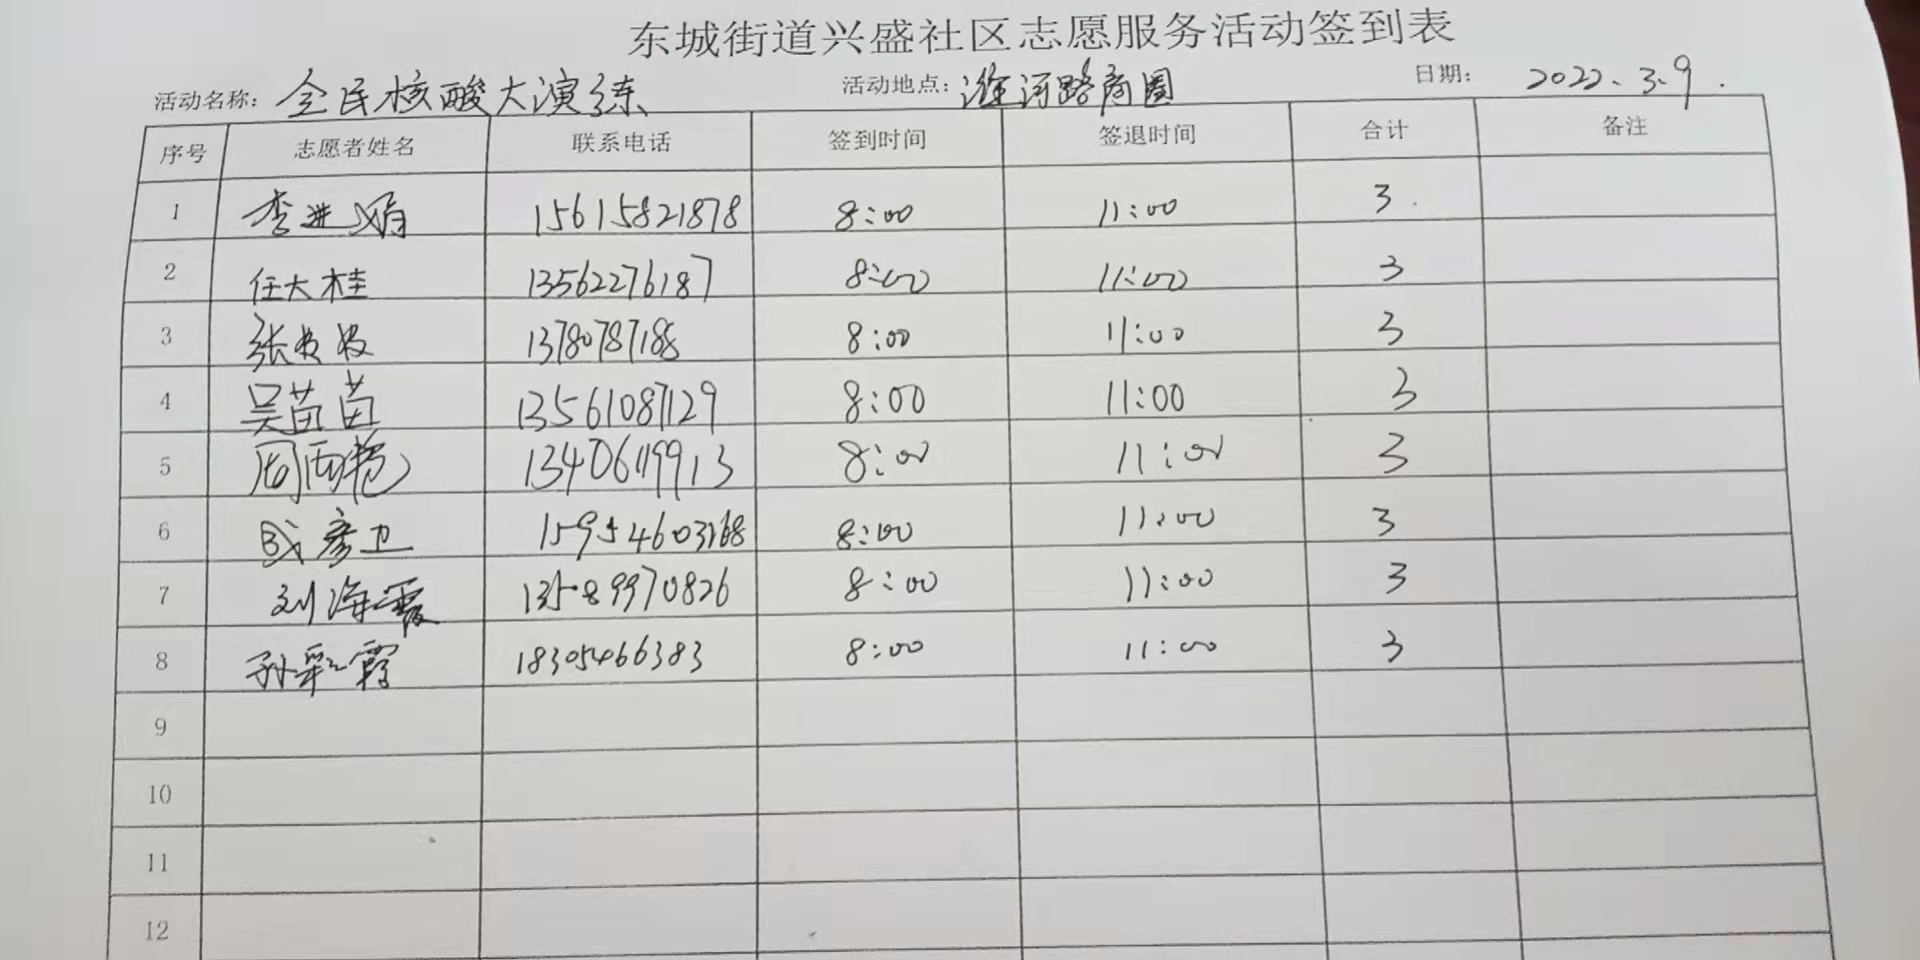 东城街道兴盛社区志愿服务活动签到表
活动名称：全民核酸大演练 活动地点：淮河路商圈 日期：2022.3.9.
序号 志愿者姓名 联系电话 签到时间 签退时间 合计 备注
1 李进娟 15615821878 8:00 11:00 3
2 任大桂 13562276187 8:00 11:00 3
3 张 13780787188 8:00 11:00 3
4 吴苗苗 13561087129 8:00 11:00 3
5 周雨艳 13406119913 8:00 11:00 3
6 彦卫 15954603168 8:00 11:00 3
7 刘海霞 13589970826 8:00 11:00 3
8 孙彩霞 18305466383 8:00 11:00 3
9
10
11
12